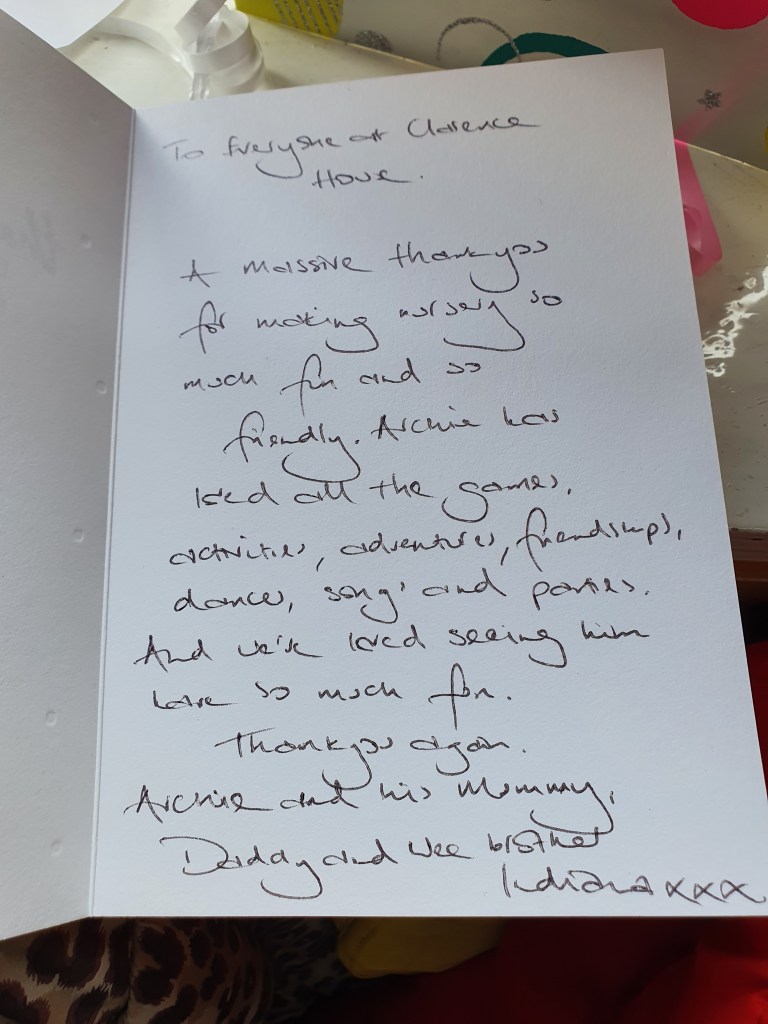 To Everyone at Clarence
House.
A massive thankyou
for making nursery so
much fun and so
friendly. Archie has
loved all the games,
activities, adventures, friendships,
dances, songs and parties.
And we've loved seeing him
have so much fun.
Thankyou again.
Archie and his Mummy,
Daddy and wee brother
Indiana xxx